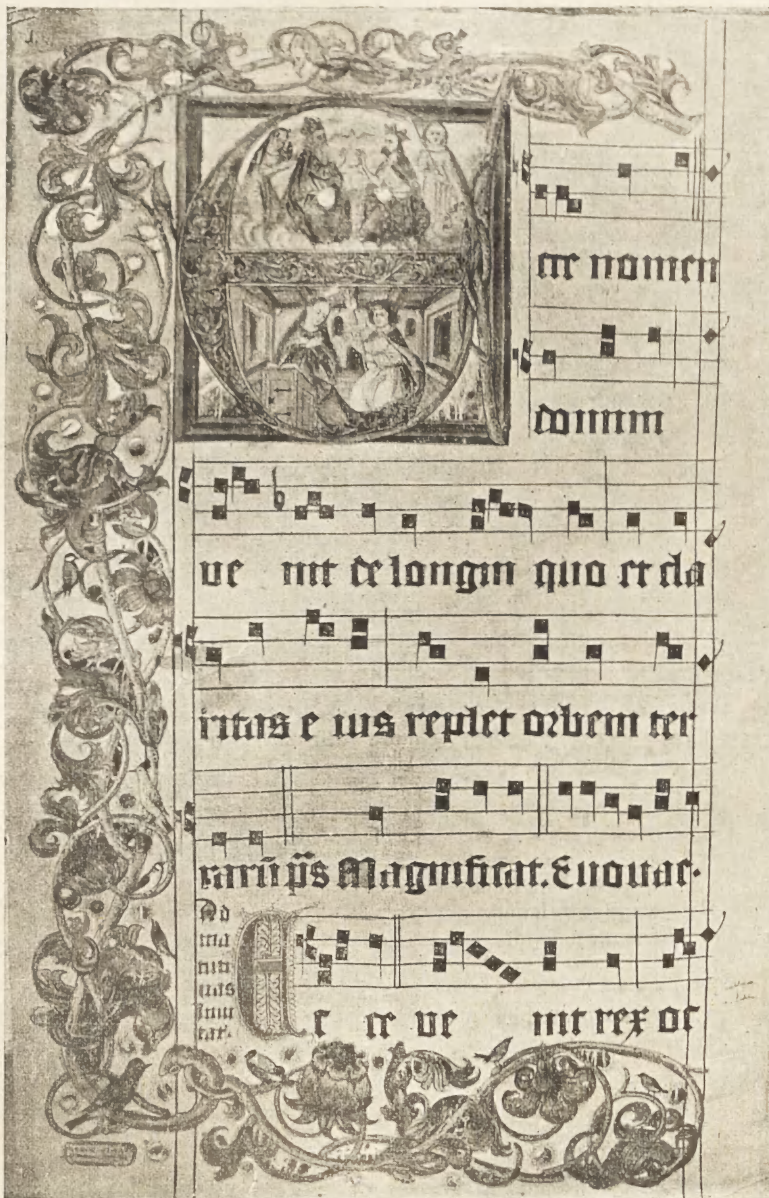 E cce nomen
domini
ve nit de longin quo et cla
ritas e ius replet orbem ter
rarū p̄s Magnificat. Euouae.
Ad
ma
tuti
nas
invi
tat.
E c ce ve nit rex oc